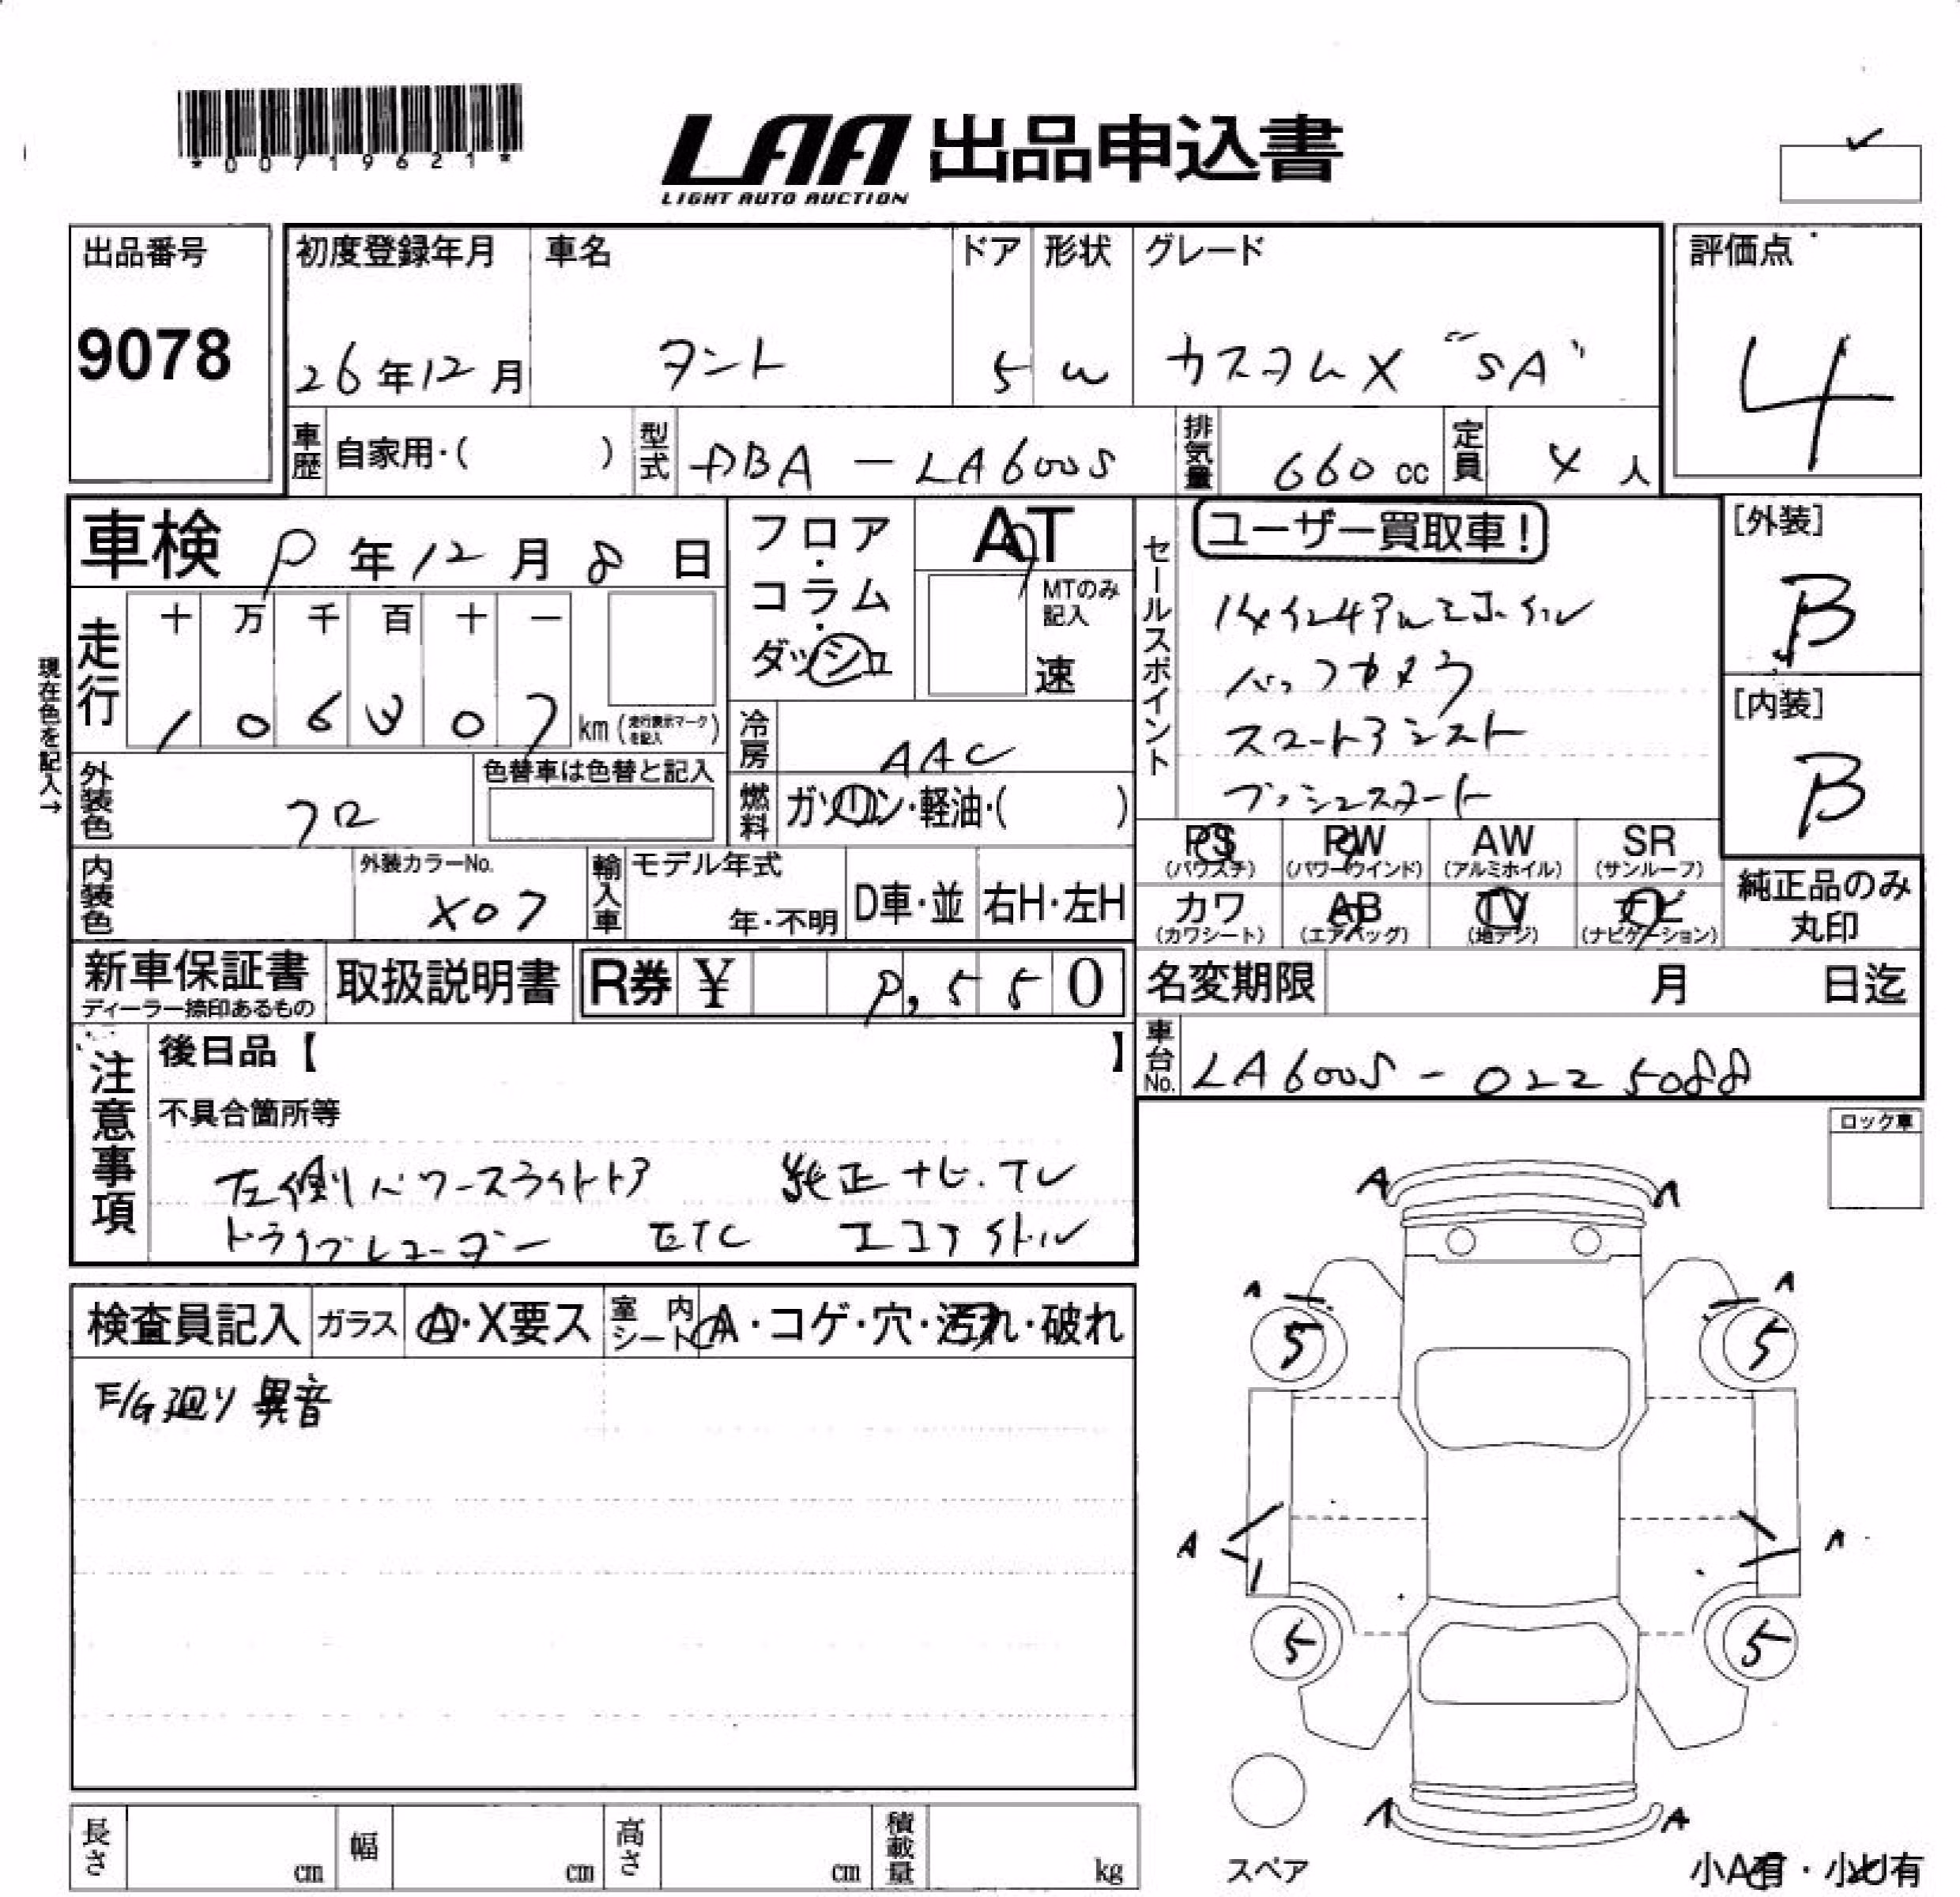 *00719621*
LAA 出品申込書
LIGHT AUTO AUCTION
出品番号
9078
初度登録年月
26年12月
車名
タント
ドア
5
形状
W
グレード
カスタムX "SA"
評価点
4
車歴 自家用・( )
型式 DBA - LA600S
排気量 660 cc
定員 4 人
車検 年12月8日
フロア・コラム・ダッシュ
AT
MTのみ記入
速
セールスポイント
ユーザー買取車!
14インチアルミホイル
バックカメラ
スマートアシスト
プッシュスタート
[外装]
B
[内装]
B
現在色を記入→
走行
十 万 千 百 十 一
1 0 6 3 0 7 km (走行表示マークを記入)
冷房 AAC
燃料 ガソリン・軽油・( )
外装色 クロ
色替車は色替と記入
内装色
外装カラーNo.
X07
輸入車
モデル年式
年・不明
D車・並
右H・左H
PS (パワステ)
PW (パワーウインド)
AW (アルミホイル)
SR (サンルーフ)
カワ (カワシート)
AB (エアバッグ)
TV (地デジ)
ナビ (ナビゲーション)
純正品のみ丸印
新車保証書
ディーラー捺印あるもの
取扱説明書
R券 ¥ ,550
名変期限 月 日迄
車台No. LA600S - 0225088
注意事項
後日品【 】
不具合箇所等
左側パワースライドドア 純正ナビ.TV
ドライブレコーダー ETC エコアイドル
ロック車
検査員記入
ガラス A・X要ス
室内シート A・コゲ・穴・汚れ・破れ
E/G廻り 異音
A A
A A
5 5
A A
5 5
A A
スペア
小A有・小U有
長さ cm
幅 cm
高さ cm
積載量 kg